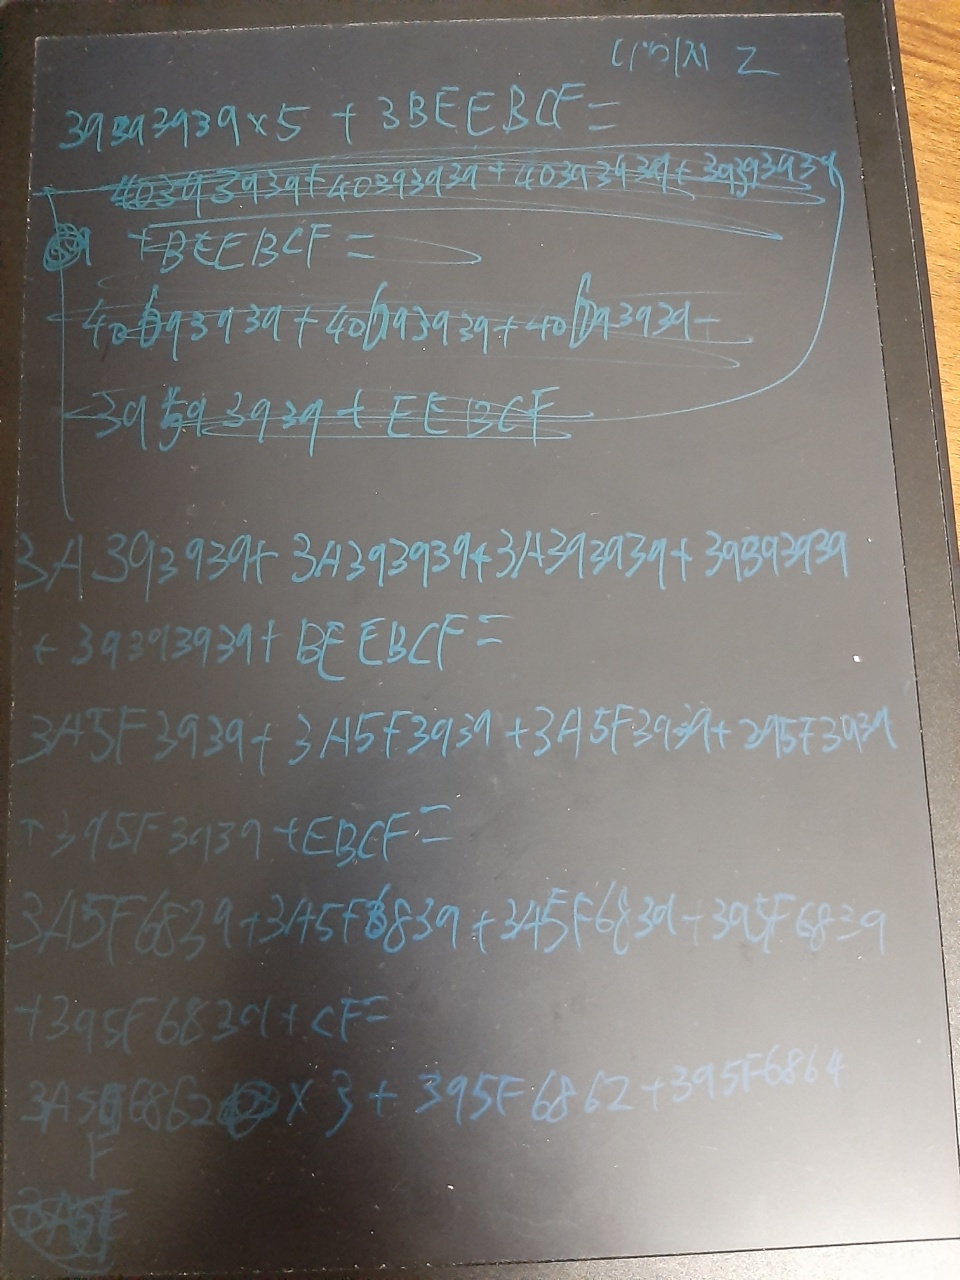 페이지 2
39393939 x 5 + 3BEEBCF =
40393939 + 40393939 + 40393939 + 39393939
+ BEEBCF =
40b93939 + 40b93939 + 40b93939 +
39593939 + EEBCF
3A393939 + 3A393939 + 3A393939 + 39393939
+ 39393939 + BEEBCF =
3A5F3939 + 3A5F3939 + 3A5F3939 + 395F3939
+ 395F3939 + EBCF =
3A5F6839 + 3A5F6839 + 3A5F6839 + 395F6839
+ 395F6839 + CF =
3A5F6862 x 3 + 395F6862 + 395F6864
3A5F